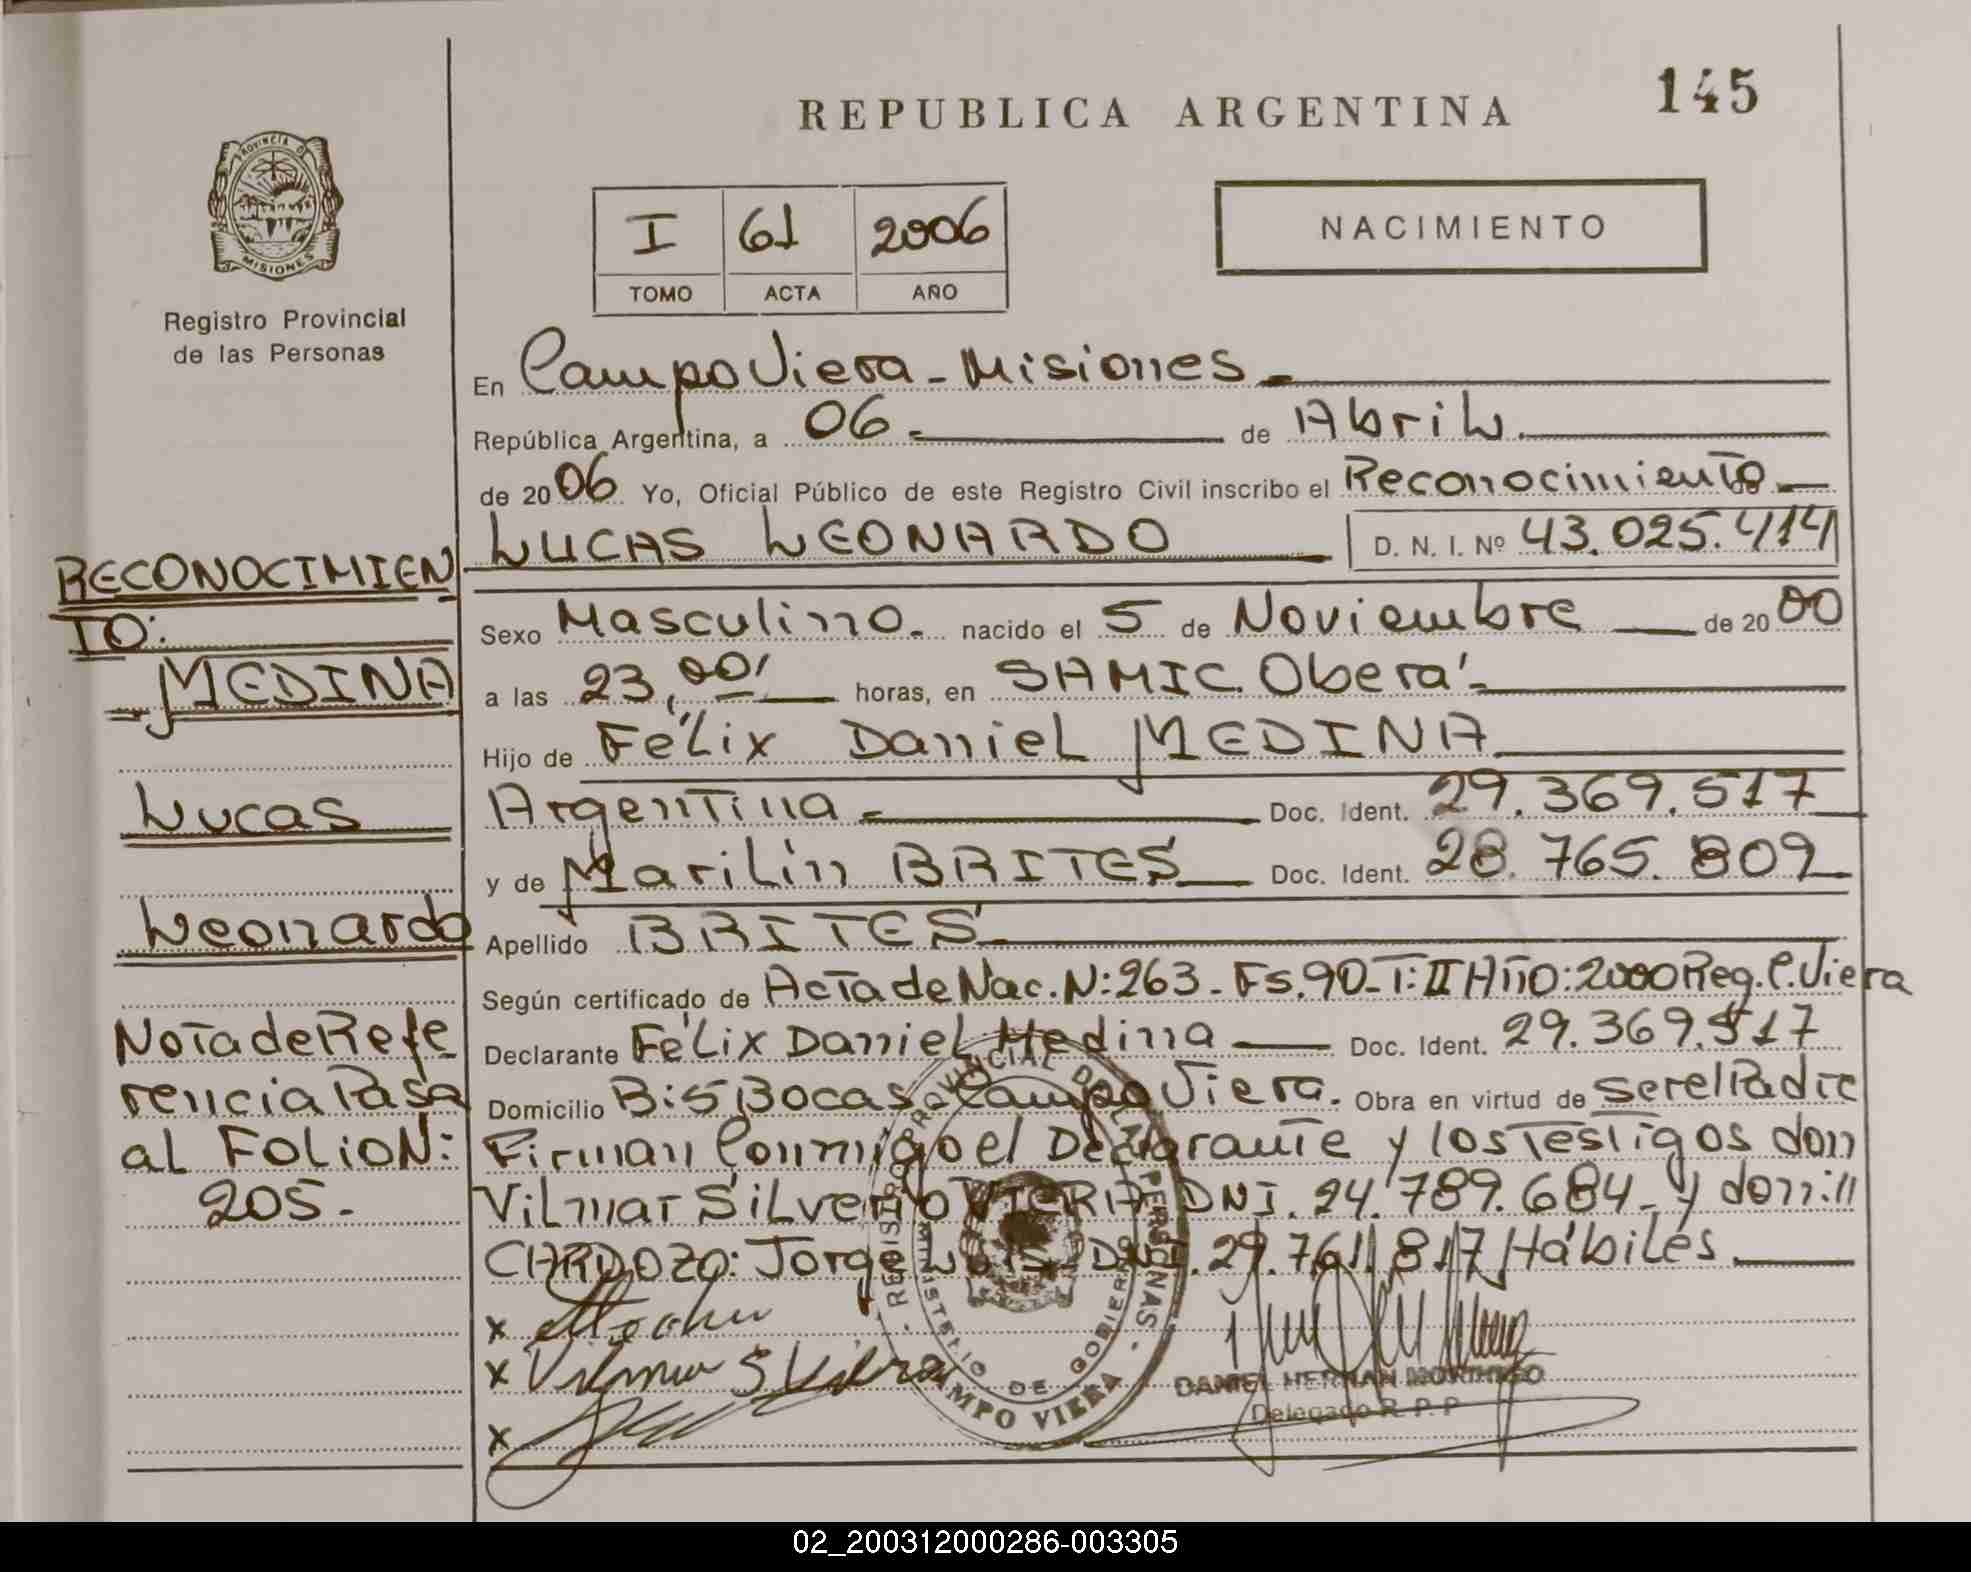 145
REPUBLICA ARGENTINA
PROVINCIA DE
MISIONES
Registro Provincial
de las Personas
I 61 2006
TOMO ACTA AÑO
NACIMIENTO
En Campo Viera - Misiones.
República Argentina, a 06. de Abril.
de 2006 Yo, Oficial Público de este Registro Civil inscribo el Reconocimiento de
LUCAS LEONARDO D. N. I. Nº 43.025.414
Sexo Masculino. nacido el 5 de Noviembre de 2000
a las 23,00' horas, en SAMIC. Oberá.
Hijo de Félix Daniel MEDINA
Argentina Doc. Ident. 29.369.517
y de Marilin BRITES Doc. Ident. 28.765.809
Apellido BRITES
Según certificado de Acta de Nac. N: 263 - Fs. 90 - T: II Año: 2000 Reg. C. Viera
Declarante Félix Daniel Medina Doc. Ident. 29.369.517
Domicilio B: 5 Bocas - Campo Viera. Obra en virtud de ser el Padre
Firman Conmigo el Declarante y los Testigos don
Vilmar Silverio VIERA DNI. 24.789.684 - y don:
CARDOZO: Jorge Luis - DNI. 29.761.817 Hábiles.
x
x Vilmar S Viera
x
RECONOCIMIEN
TO:
MEDINA
Lucas
Leonardo
Nota de Refe
rencia Pasa
al FOLIO N:
205.
REGISTRO PROVINCIAL DE LAS PERSONAS
MINISTERIO DE GOBIERNO
CAMPO VIERA
DANIEL HERNAN MORINIGO
Delegado R. P. P
02_200312000286-003305